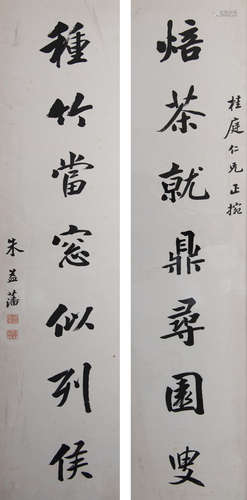 桂庭仁兄正捥
焙茶就鼎尋園叟
種竹當窓似列侯
朱益藩